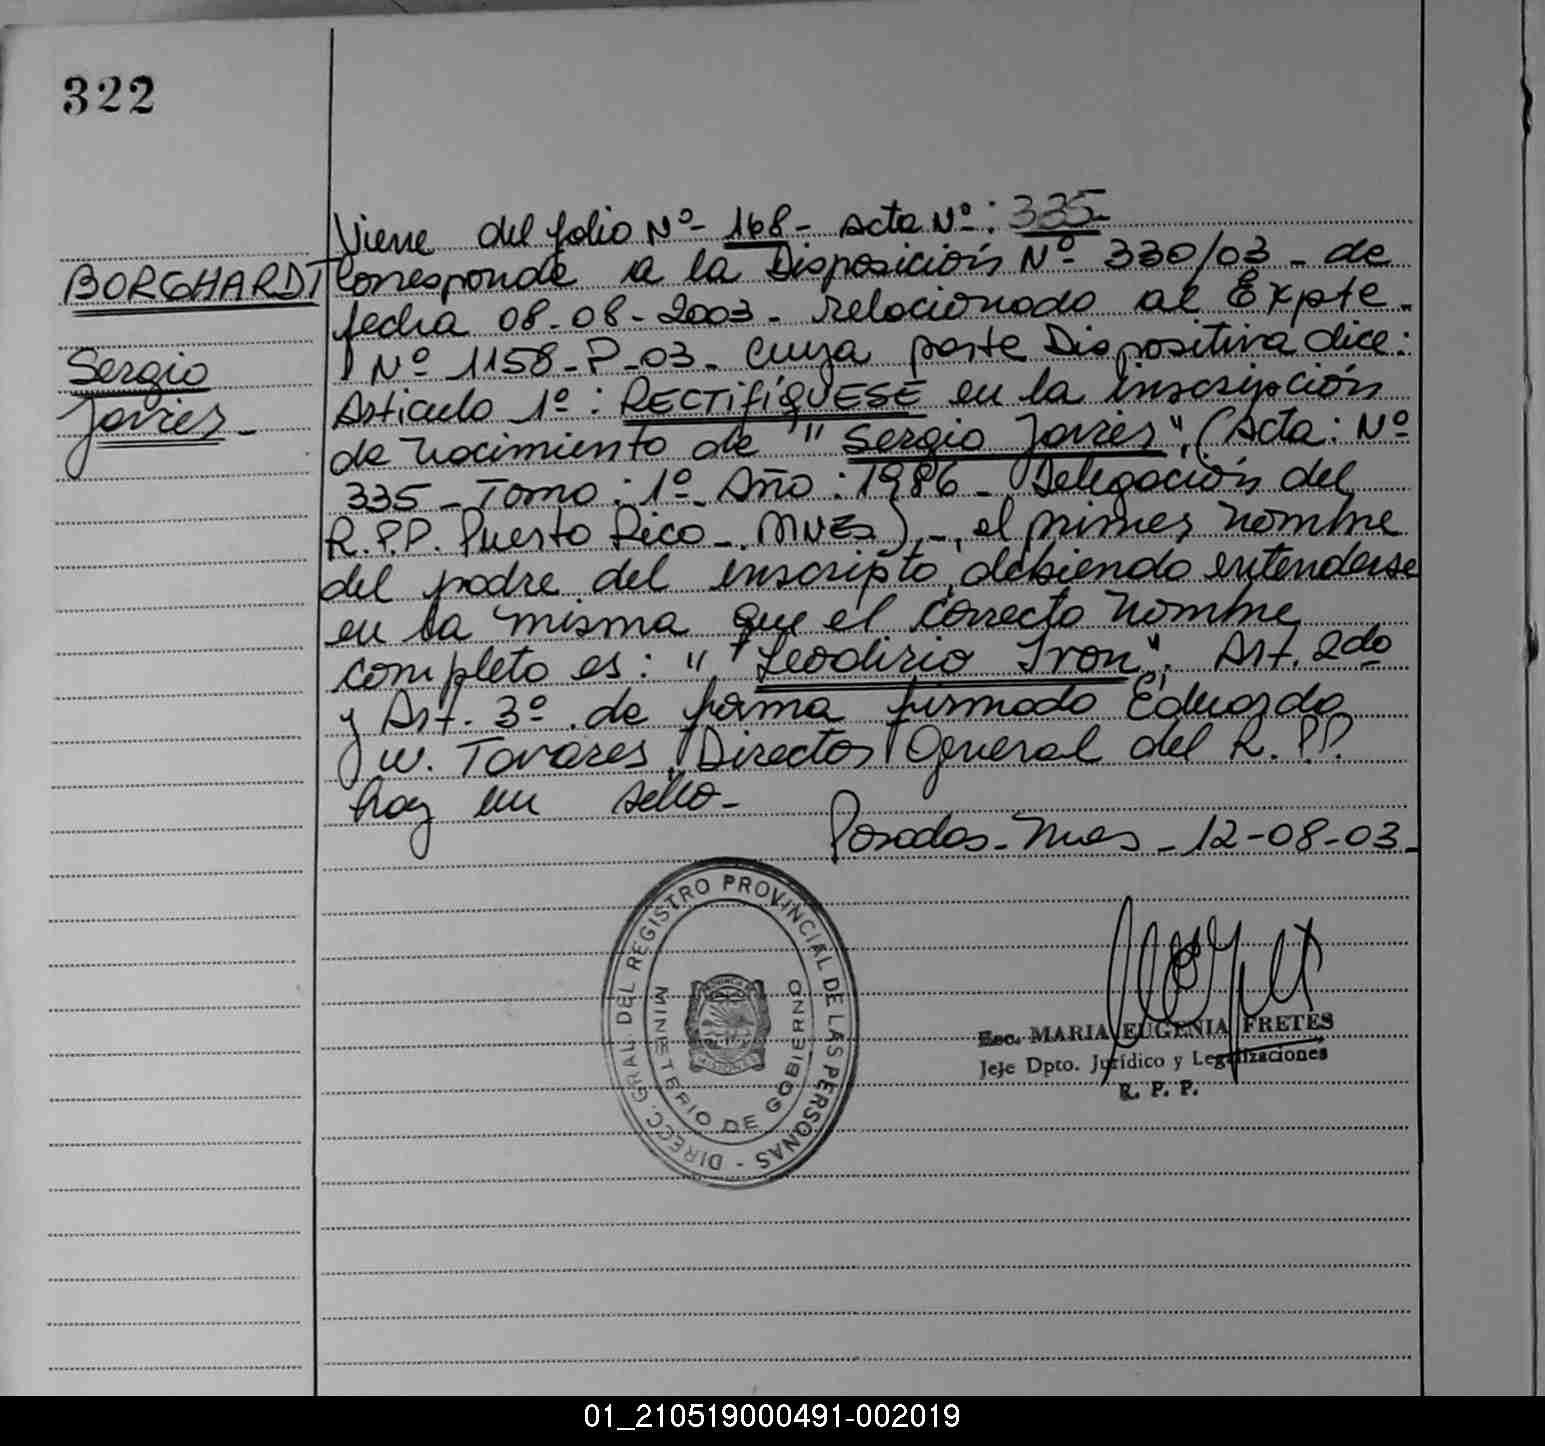 322
BORGHARDT
Sergio
Javier -
Viene del folio Nº - 168 - Acta Nº: 335
Corresponde a la Disposición Nº 330/03 - de
fecha 08-08-2003 - relacionado al Expte.
Nº 1158-P-03 - cuya parte Dispositiva dice:
Articulo 1º: RECTIFÍQUESE en la inscripción
de nacimiento de "Sergio Javier", (Acta: Nº
335 - Tomo: 1º - Año: 1986 - Delegación del
R.P.P. Puerto Rico - Mnes) -, el primer nombre
del padre del inscripto, debiendo entenderse
en la misma que el correcto nombre
completo es: "Leodirio Iron". Art. 2do
y Art. 3º de forma firmado Eduardo
W. Tavares, Director General del R.P.P.
hay un sello -
Posadas - Mnes - 12-08-03 -
DIRECC. GRAL. DEL REGISTRO PROVINCIAL DE LAS PERSONAS -
MINISTERIO DE GOBIERNO
Esc. MARIA EUGENIA FRETES
Jefe Dpto. Jurídico y Legalizaciones
R. P. P.
01_210519000491-002019